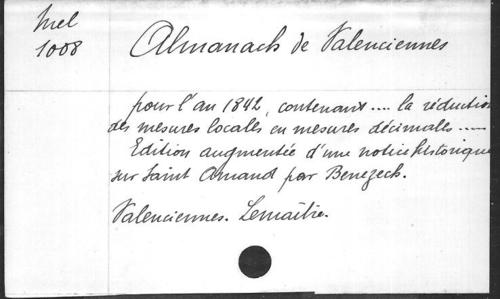 Mel
1008
Almanach de Valenciennes
pour l'an 1842, contenant .... la réduction
des mesures locales en mesures décimales .....
Edition augmentée d'une notice historique
sur Saint Amand par Benezech.
Valenciennes. Lemaître.